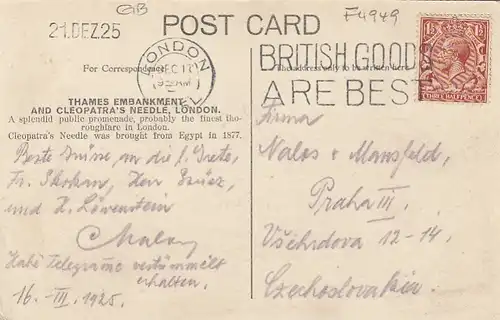 GB
F4949
21.DEZ.25
POST CARD
LONDON
DEC 17
BRITISH GOODS
ARE BEST
THREE HALFPENCE
For Correspondence
The address only to be written here
THAMES EMBANKMENT
AND CLEOPATRA'S NEEDLE, LONDON.
A splendid public promenade, probably the finest tho-
roughfare in London.
Cleopatra's Needle was brought from Egypt in 1877.
Beste Grüsse an die l. Grete,
Fr. Skokan, Herr
und H. Löwenstein
Habe Telegramme verstümmelt
erhalten.
16. III. 1925.
Firma
Nalos & Mansfeld,
Praha III.
Všehrdova 12-14.
Czechoslovakia.